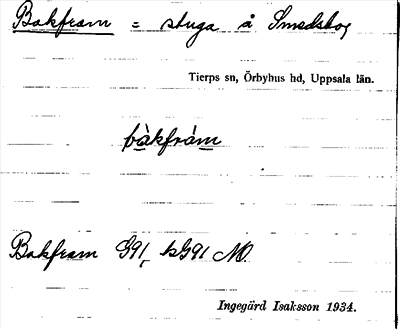 Bakfram = stuga å Smedsbog
Tierps sn, Örbyhus hd, Uppsala län.
bàkfràm
Bakfram G91, kG91 NO.
Ingegärd Isaksson 1934.